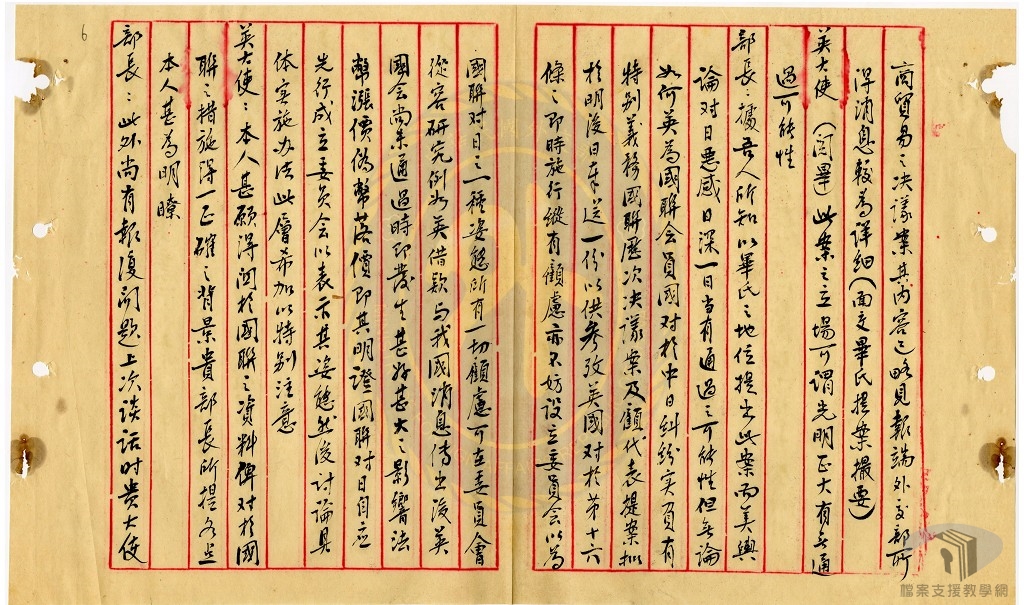 商貿易之决議案其内容已略見報端外交部所
得消息較為詳細(面交畢氏提案撮要)
英大使 (閲畢)此案之立場可謂光明正大有無通
過可能性
部長:據吾人所知以畢氏之地位提出此案而美輿
論对日惡感日深一日当有通過之可能性但無論
如何英為國聯会員國对於中日糾紛实負有
特别義務國聯歷次决議案及顧代表提案擬
於明後日奉送一份以供參攷英國对於第十六
條之即時施行縱有顧慮亦不妨設立委員会以為
國聯对日之一種姿態所有一切顧慮可在委員會
從容研究例如英借款与我國消息传出後英
國会尚未通過時即發生甚好甚大之影響法
幣漲價偽幣落價即其明證國聯对日自应
先行成立委员会以表示其姿態然後討論具
体实施办法此層希加以特别注意
英大使:本人甚願得関於國聯之資料俾对於國
聯之措施得一正確之背景貴部長所提各点
本人甚為明瞭
部長:此外尚有報復问题上次谈话时贵大使
6
檔案支援教學網